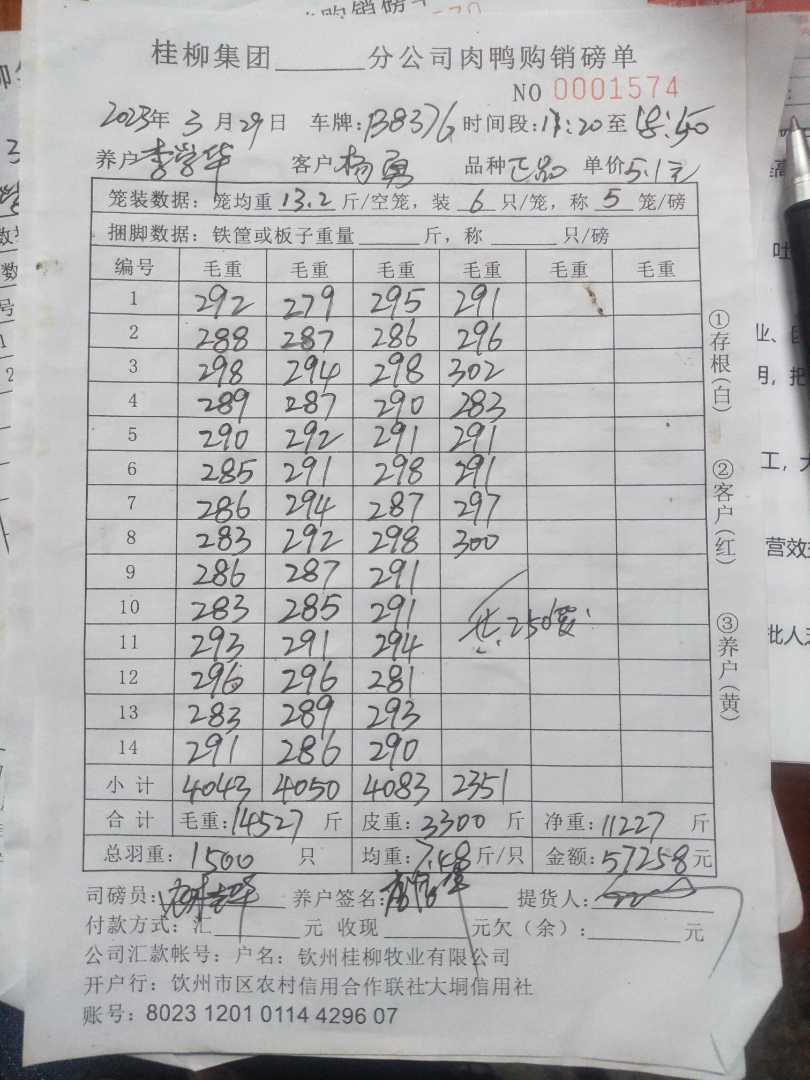 桂柳集团______分公司肉鸭购销磅单
NO 0001574
2023年 3 月 29 日 车牌:B8376 时间段:17:20至18:50
养户李学华 客户杨勇 品种正品 单价5.1元
笼装数据：笼均重 13.2 斤/空笼，装 6 只/笼，称 5 笼/磅
捆脚数据：铁筐或板子重量______斤，称______只/磅
编号 毛重 毛重 毛重 毛重 毛重 毛重
1 292 279 295 291
2 288 287 286 296
3 298 294 298 302
4 289 287 290 283
5 290 292 291 291
6 285 291 298 291
7 286 294 287 297
8 283 292 298 300
9 286 287 291
10 283 285 291 共:250笼
11 293 291 294
12 296 296 281
13 283 289 293
14 291 286 290
小计 4043 4050 4083 2351
合计 毛重:14527 斤 皮重:3300 斤 净重:11227 斤
总羽重:1500 只 均重:7.48斤/只 金额:57258元
司磅员: 养户签名: 提货人:
付款方式:汇______元 收现______元欠（余）:______元
公司汇款帐号：户名：钦州桂柳牧业有限公司
开户行：饮州市区农村信用合作联社大垌信用社
账号：8023 1201 0114 4296 07
①存根(白) ②客户(红) ③养户(黄)